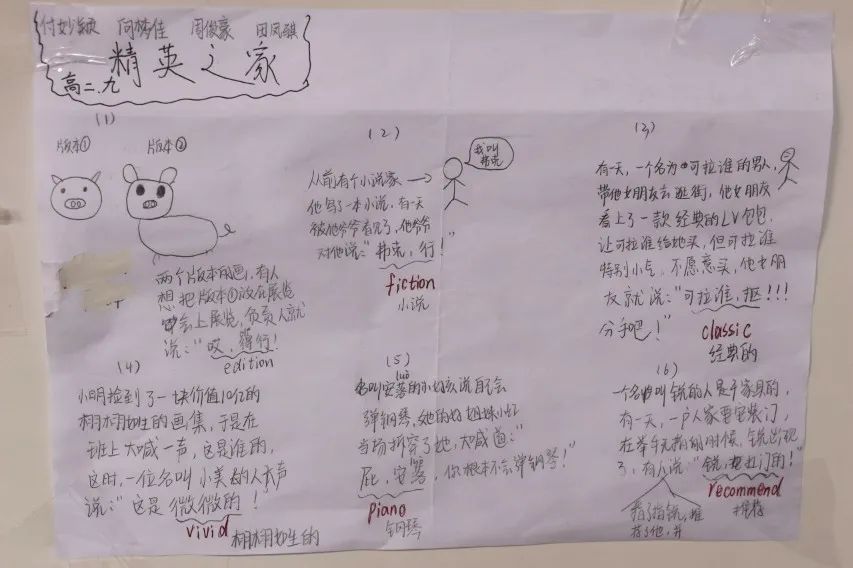 付妙颖 何梦佳 周俊豪 田凤麒
精英之家
高二.九
(1)
版本① 版本②
两个版本的画,有人
想把版本①放在展览
会上展览,负责人就
说:“哎,得行!
edition
(2)
我叫
弗克
从前有个小说家
他写了一本小说,有一天
被他爷爷看见了,他爷爷
对他说:“弗克,行!”
fiction
小说
(3)
有一天,一个名为可拉谁的男人,
带他女朋友去逛街,他女朋友
看上了一款经典的LV包包,
让可拉谁给她买,但可拉谁
特别小气,不愿意买,他女朋
友就说:“可拉谁,抠!!!
分手吧!”
classic
经典的
(4)
小明捡到了一块价值10亿的
栩栩如生的画集,于是在
班上大喊一声,这是谁的,
这时,一位名叫小美的人
说:“这是微微的!
vivid
栩栩如生的
(5)
名叫安落的小女孩说自己会
弹钢琴,她的好姐妹小红
当场拆穿了她,大喊道:“
屁,安落,你根本不会弹钢琴!”
piano
钢琴
(6)
一个名叫锐的人是干家具的,
有一天,一户人家要安装门,
在举手无措的时候,锐出现
了,有人说:“锐,
门的!”
recommend
推荐